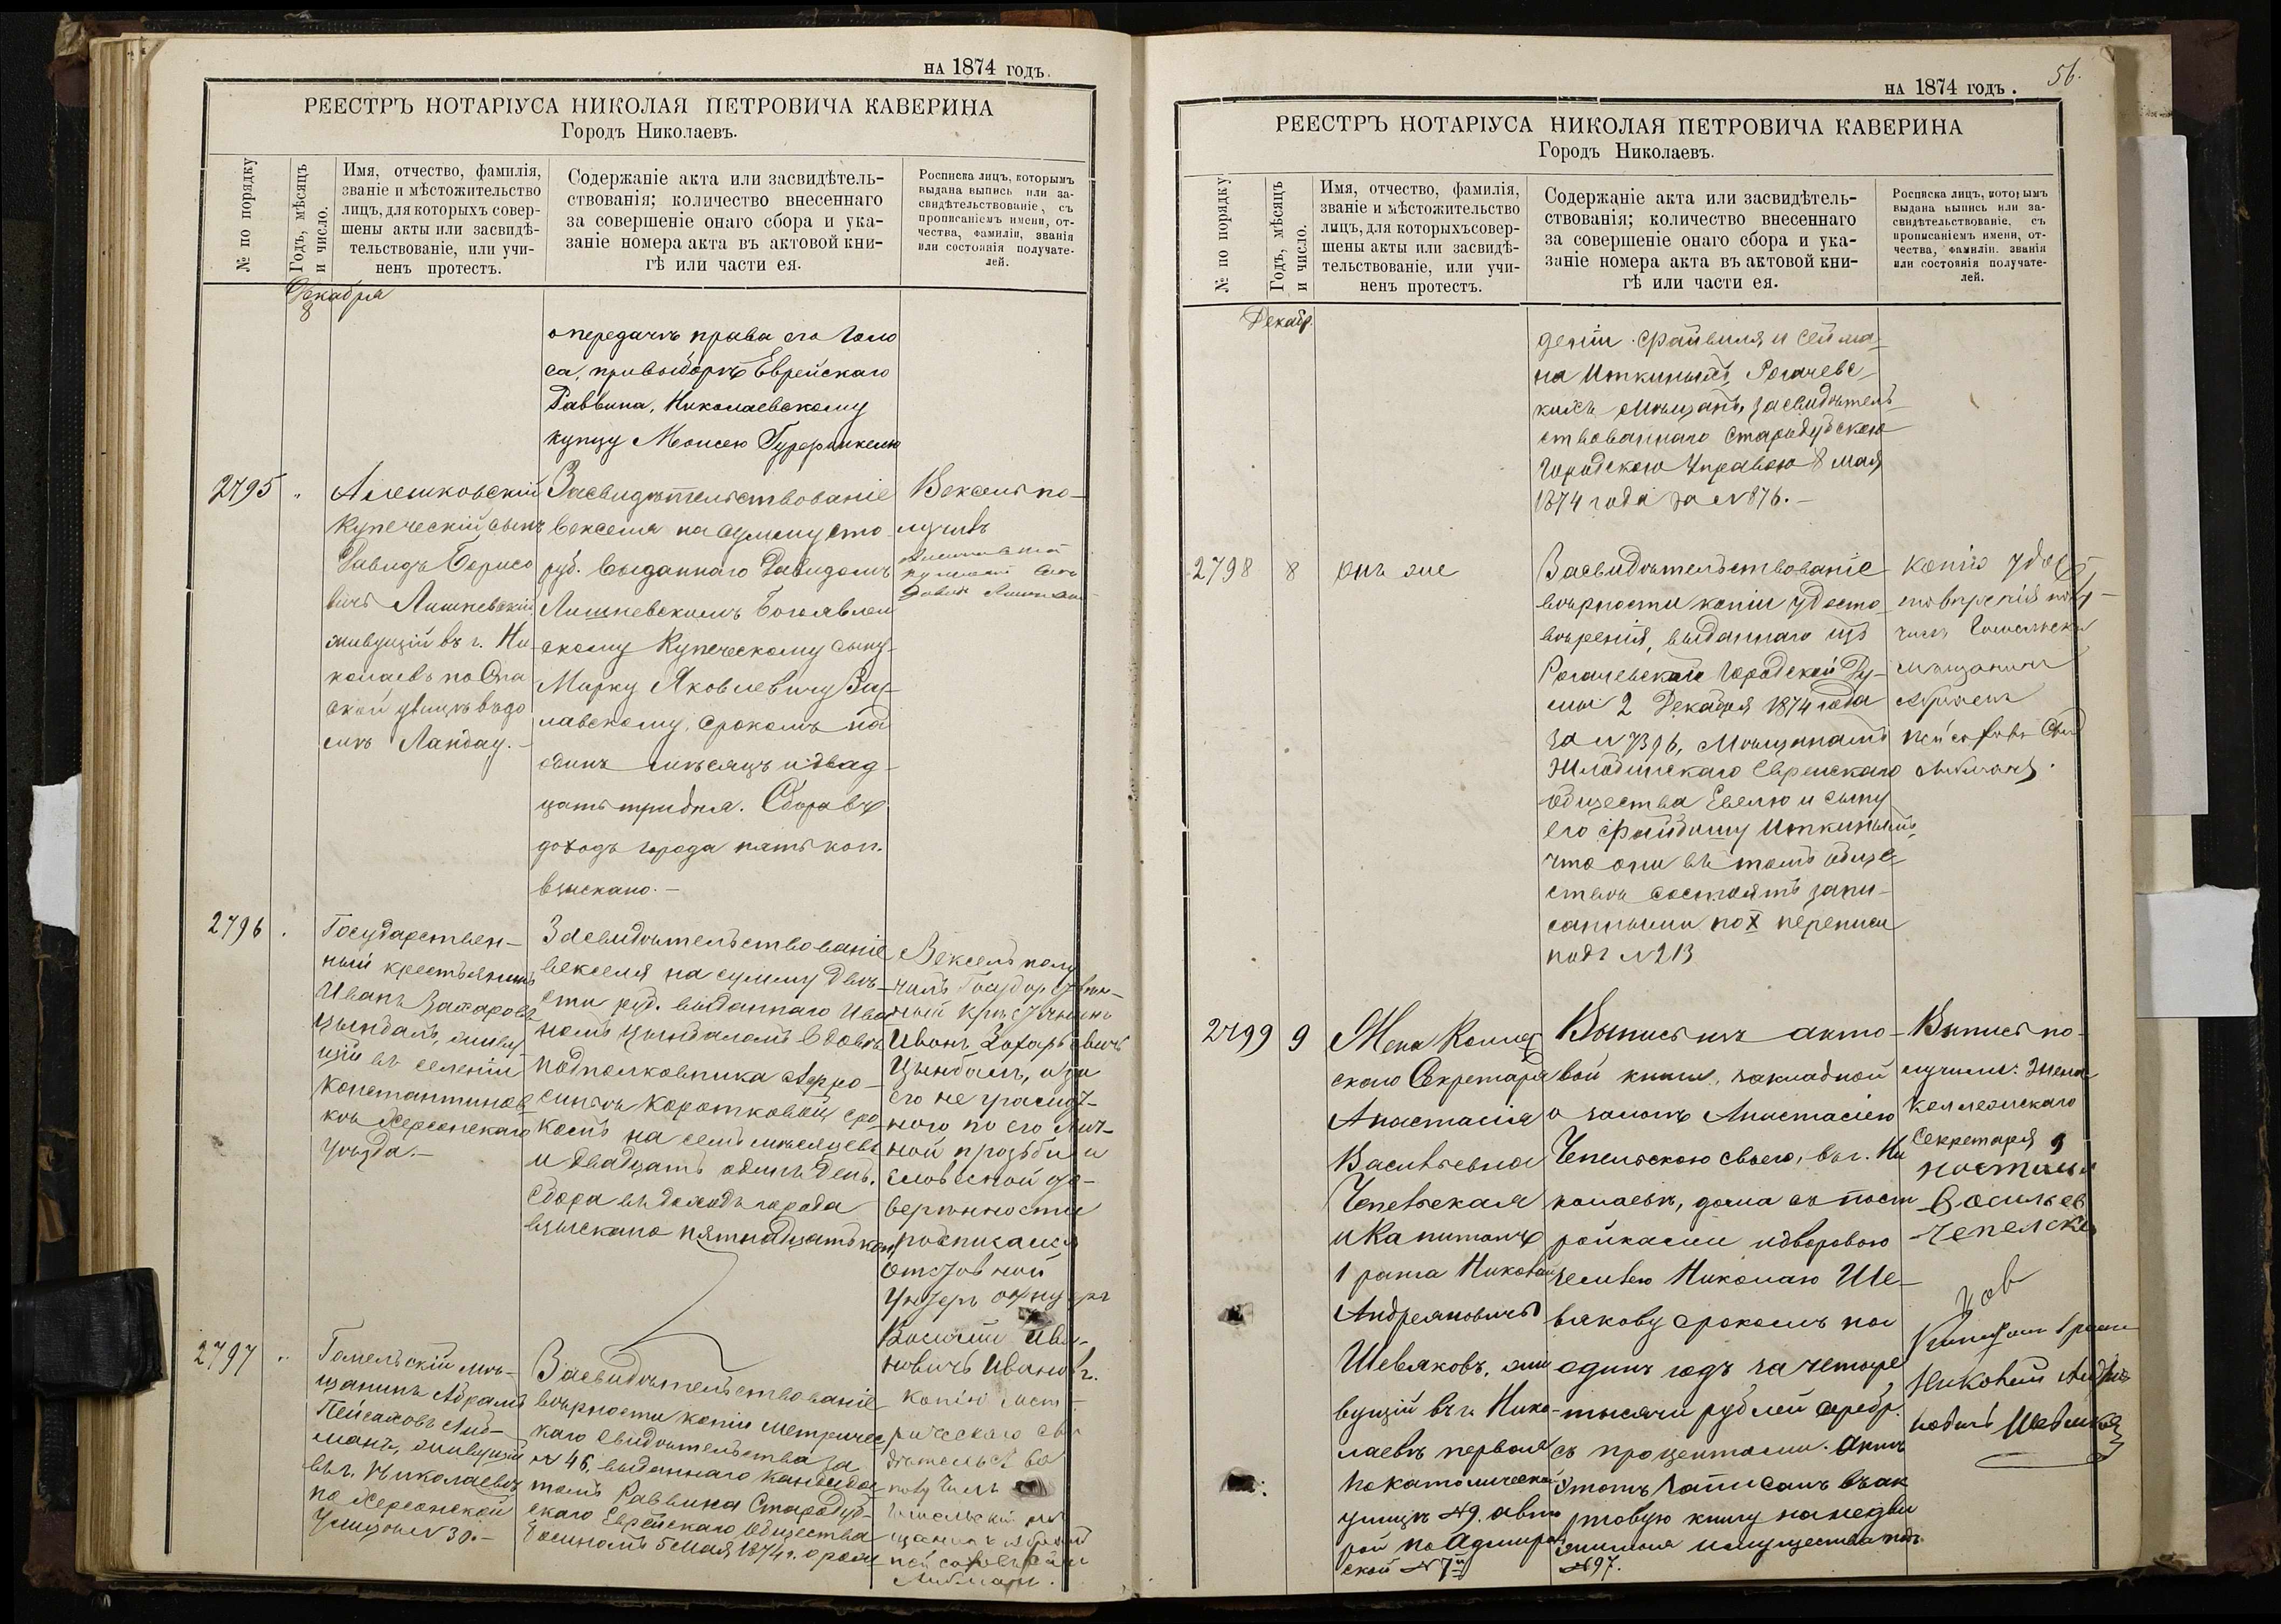 НА 1874 ГОДЪ.
РЕЕСТРЪ НОТАРІУСА НИКОЛАЯ ПЕТРОВИЧА КАВЕРИНА
Городъ Николаевъ.
№ по порядку
Годъ, мѣсяцъ
и число.
Имя, отчество, фамилія,
званіе и мѣстожительство
лицъ, для которыхъ совер-
шены акты или засвидѣ-
тельствованіе, или учи-
ненъ протестъ.
Содержаніе акта или засвидѣтель-
ствованія; количество внесеннаго
за совершеніе онаго сбора и ука-
заніе номера акта въ актовой кни-
гѣ или части ея.
Росписка лицъ, которымъ
выдана выпись или за-
свидѣтельствованіе, съ
прописаніемъ имени, от-
чества, фамиліи, званія
или состоянія получате-
лей.
Декабря
8
о передачѣ права его голо
са, при выборѣ Еврейскаго
Раввина, Николаевскому
купцу Моисею Гурфинкелю
2795
Алешковскій
Купеческій сынъ
Давидъ Борисо
вичъ
живущій въ г. Ни
колаевѣ по Спа
ской улицѣ въ до
мѣ Ландау.-
Засвидѣтельствованіе
векселя на сумму сто
руб. выданнаго Давидомъ
Богоявлен
скому Купеческому сыну
Марку Яковлевичу Зас-
лавскому, срокомъ на
одинъ мѣсяцъ и двад-
цать три дня. Сбора въ
доходъ города пять коп.
взыскано.-
Вексель по-
лучилъ
2796
Государствен-
ный крестьянинъ
Иванъ Захаровъ
Цындалъ, живу
щій въ селеніи
Константинов
кѣ Херсонскаго
уѣзда.-
Засвидѣтельствованіе
векселя на сумму двѣ-
сти руб. выданнаго Ива
номъ Цындаломъ вдовѣ
подполковника Афро-
синьѣ Коротковой, сро
комъ на семь мѣсяцевъ
и двадцать одинъ день.
Сбора въ доходъ города
взыскано пятнадцать коп.
Вексель полу
чилъ Государствен-
ный крестьянинъ
Иванъ Захарьевичъ
Цындалъ, а за
его не грамот-
ного по его лич-
ной прозьби и
словесной до-
веренности
росписался
отставной
унтеръ офицеръ
Василий Ива-
новичъ Ивановъ.
2797
Гомельскій мѣ-
щанинъ Абрамъ
Пейсаховъ Либ-
манъ, живущій
въ г. Николаевѣ
по Херсонской
улицѣ № 30.-
Засвидѣтельствованіе
вѣрности копіи метричес
каго свидѣтельства за
№ 46, выданнаго кандида
томъ Раввина Стародуб-
скаго Еврейскаго Общества
5 Мая 1874 г. о рож
копію мет-
рическаго сви
дѣтельства
получилъ
Гомельскій мѣ
щанинъ Абрамъ
Пейсаховъ
Либманъ.
НА 1874 ГОДЪ.
56.
РЕЕСТРЪ НОТАРІУСА НИКОЛАЯ ПЕТРОВИЧА КАВЕРИНА
Городъ Николаевъ.
№ по порядку
Годъ, мѣсяцъ
и число.
Имя, отчество, фамилія,
званіе и мѣстожительство
лицъ, для которыхъ совер-
шены акты или засвидѣ-
тельствованіе, или учи-
ненъ протестъ.
Содержаніе акта или засвидѣтель-
ствованія; количество внесеннаго
за совершеніе онаго сбора и ука-
заніе номера акта въ актовой кни-
гѣ или части ея.
Росписка лицъ, которымъ
выдана выпись или за-
свидѣтельствованіе, съ
прописаніемъ имени, от-
чества, фамиліи, званія
или состоянія получате-
лей.
Декабр.
деніи Файвиля и Сейма-
на Иткиныхъ, Рогачевс-
кихъ мѣщанъ, засвидѣтель-
ствованнаго Стародубскою
Городскою Управою 8 мая
1874 года за № 876.-
2798
8
онъ же
Засвидѣтельствованіе
вѣрности копіи удосто
вѣренія, выданнаго изъ
Рогачевской Городской Ду-
мы 2 Декабря 1874 года
за № 7396, мѣщанамъ
Жлобинскаго Еврейскаго
общества Евелю и сыну
его Иткинымъ,
что они въ томъ обще
ствѣ состоятъ запи-
санными по X переписи
подъ № 213
копію удос
товѣренія полу-
чилъ Гомельскій
мѣщанинъ
Абрамъ
Пейсаховъ
Либманъ.
2799
9
Жена Коллеж
скаго Секретаря
Анастасія
Васильевна
Чепельская
и Капитанъ
1 ранга Николай
Андреяновичъ
Шевяковъ, жи
вущій въ г. Нико-
лаевѣ первая
по католической
улицѣ № 9. а вто
рой по Адмираль
ской № 7й
Выпись изъ акто-
вой книги, закладной
о залогѣ Анастасіею
Чепельскою своего, въ г. Ни
колаевѣ, дома съ пост
ройками и дворовою
землею Николаю Ше-
вякову срокомъ на
одинъ годъ за четыре
тысячи рублей серебр.
съ процентами. Актъ
этотъ записанъ въ ак
товую книгу на недви
жимыя имущества подъ
№ 97.
Выпись по-
лучили: Жена
Коллежскаго
Секретаря А
настасья
Васильев
Чепелска
Капитанъ 1 ранга
Николай Андрея
новичъ Шевяковъ